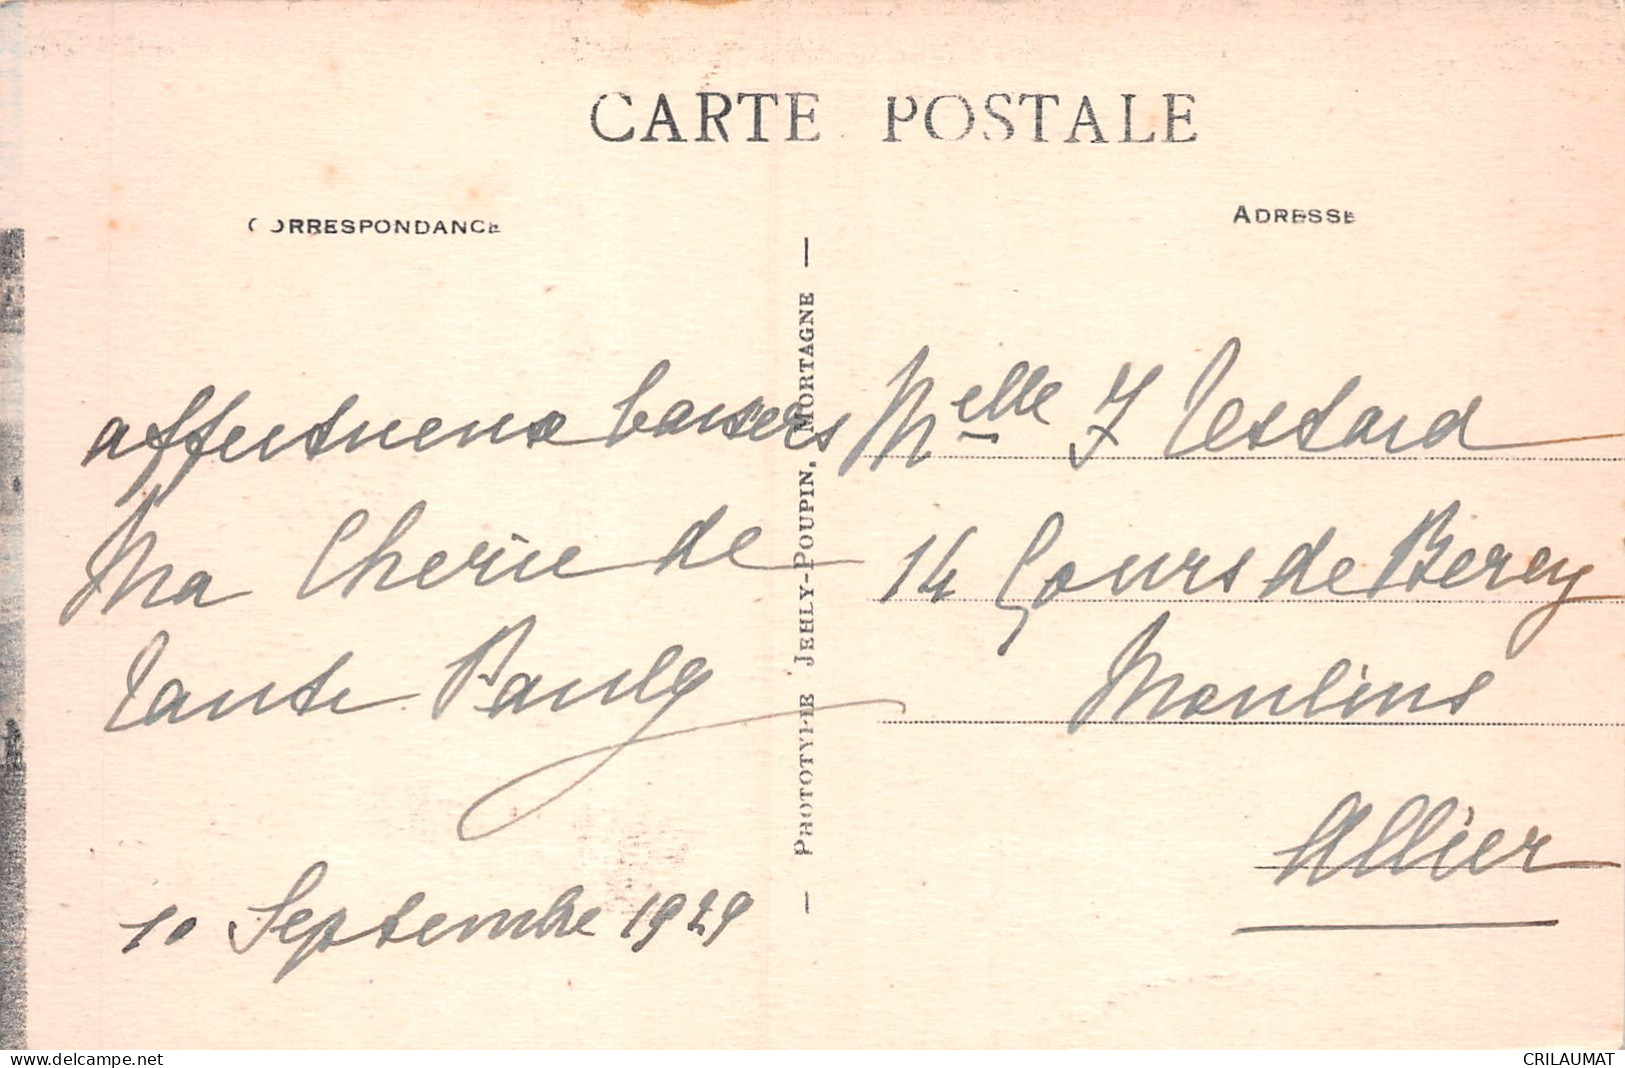 CARTE POSTALE
CORRESPONDANCE
ADRESSE
affectueux baisers
Ma Cherie de
Tante Paule
10 Septembre 1929
— PHOTOTYPIE JEHLY-POUPIN, MORTAGNE —
Melle J Testard
14 Cours de Bercy
Moulins
Allier
www.delcampe.net
CRILAUMAT